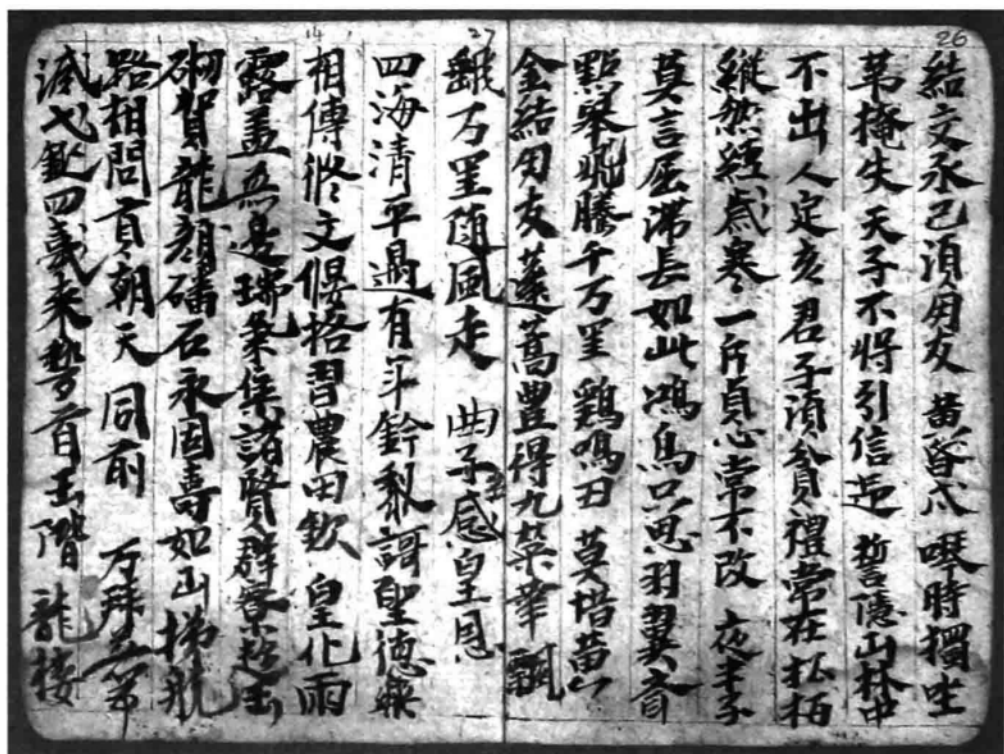 26
結交永己須朋友 黃昏戌 琴時獨坐
茅掩失天子不將引信迎 誓隱山林中
不出 人定亥 君子須貧禮常在 松栢
縱然經歲寒 一片貞心常不改 夜半子
莫言屈滯長如此 鴻鳥只思羽翼齊
點翠飛騰千万里 鷄鳴丑 莫惜黃
金結朋友 蓬蒿豊得九榮華 飄
27
颻万里隨風走 曲子感皇恩
四海清平遇有年 黔黎謌聖德樂
14
相傳修文偃 習農田欽 皇化雨
露盖無邊 瑞氣集諸賢 群寮趨玉
砌賀龍顏 磻石永固壽如山 梯航
路相問貢朝天 同前 万拜
減戈 四夷來 首玉階 龍樓